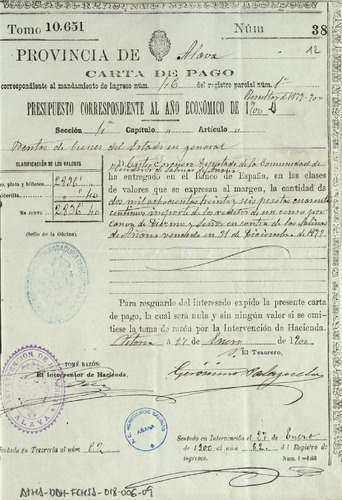 Tomo 10.651 Núm 38
12
PROVINCIA DE Alava
CARTA DE PAGO
correspondiente al mandamiento de ingreso núm 46 del registro parcial núm 1º
PRESUPUESTO CORRESPONDIENTE AL AÑO ECONÓMICO DE 1900
Sección 4ª Capítulo " Artículo "
Rentas de bienes del Estado en general
CLASIFICACIÓN DE LOS VALORES
D. Carlos de la Comunidad de
Herederos de Salinas de Añana
ha entregado en el Banco de España, en las clases
de valores que se expresan al margen, la cantidad de
dos mil doscientas treinta y seis pesetas cuarenta
céntimos importe de los réditos de un censo por
canon de Diezmo y en contra de las Salinas
de Añana vencido en 31 de Diciembre de 1899
oro, plata y billetes 2236 40
2236 40
(Sello de la Oficina)
Para resguardo del interesado expido la presente carta
de pago, la cual será nula y sin ningún valor si se omi-
tiese la toma de razón por la Intervención de Hacienda.
Vitoria á 27 de Enero de 1900
El Tesorero,
TOMÉ RAZÓN:
El Interventor de Hacienda,
Gerónimo
INTERVENCION DE HACIENDA
ALAVA
F.C. HEREDEROS SALINAS
AÑANA
Sentado en Tesorería al núm 62
Sentado en Intervención el 27 de Enero
de 1900 al núm 62 del Registro de
ingresos.
ATHA-DAH-FCHSA-018-006-09